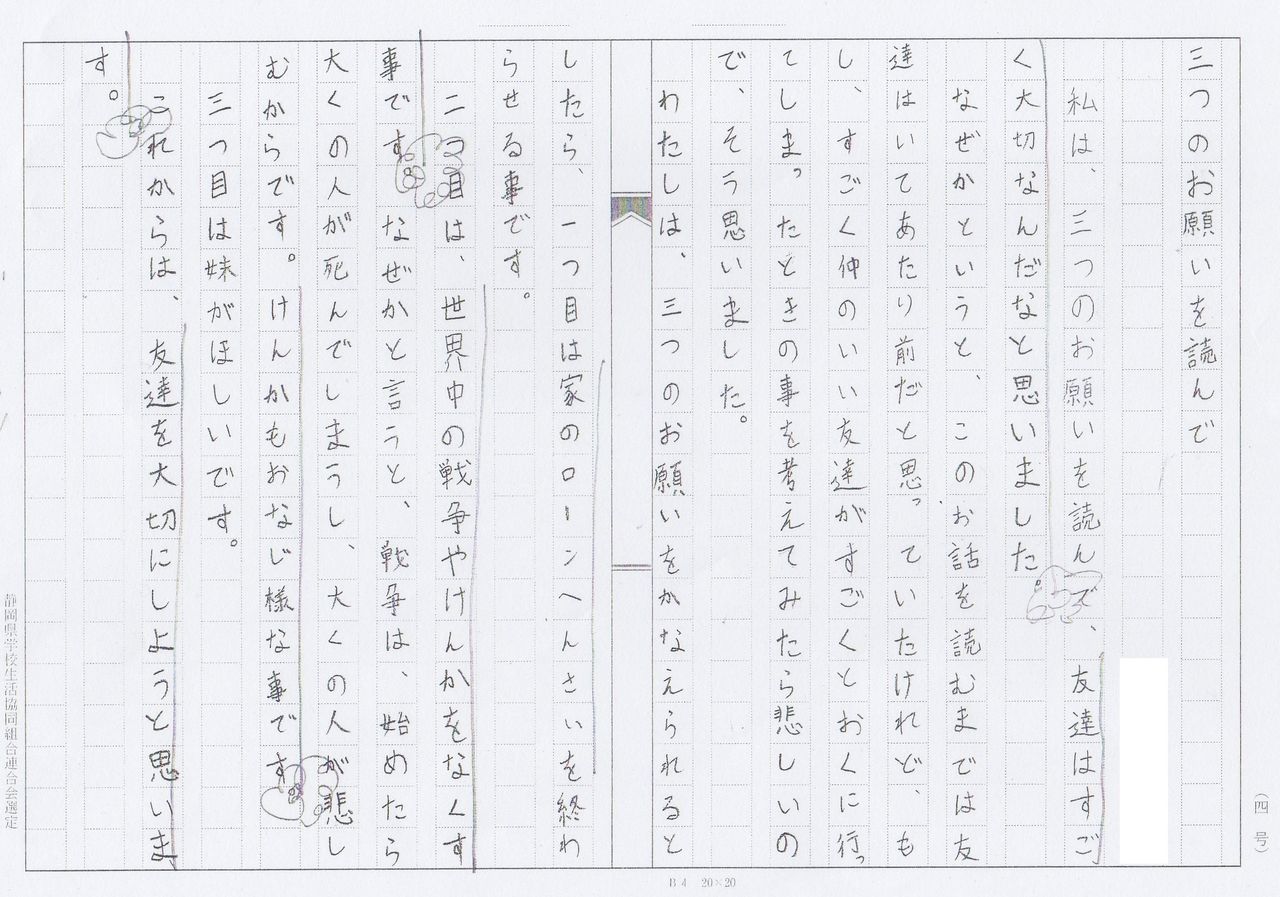 三つのお願いを読んで
私は、三つのお願いを読んで、友達はすご
く大切なんだなと思いました
なぜかというと、このお話を読むまでは友
達はいてあたり前だと思っていたけれど、も
し、すごく仲のいい友達がすごくとおくに行っ
てしまったときの事を考えてみたら悲しいの
で、そう思いました。
わたしは、三つのお願いをかなえられると
したら、一つ目は家のローンへんさいを終わ
らせる事です。
二つ目は、世界中の戦争やけんかをなくす
事です なぜかと言うと、戦争は、始めたら
大くの人が死んでしまうし、大くの人が悲し
むからです。けんかもおなじ様な事です
三つ目は妹がほしいです。
これからは、友達を大切にしようと思いま
す。
(四号)
B4 20×20
静岡県学校生活協同組合連合会選定